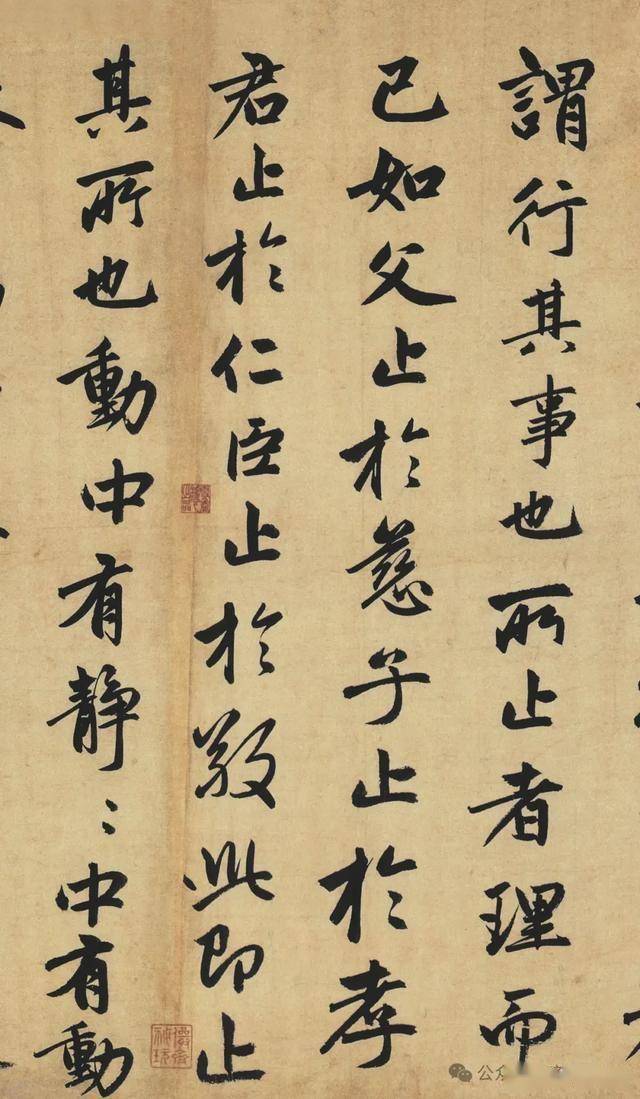 謂行其事也所止者理而
已如父止於慈子止於孝
君止於仁臣止於敬此即止
其所也動中有静〻中有動
公众